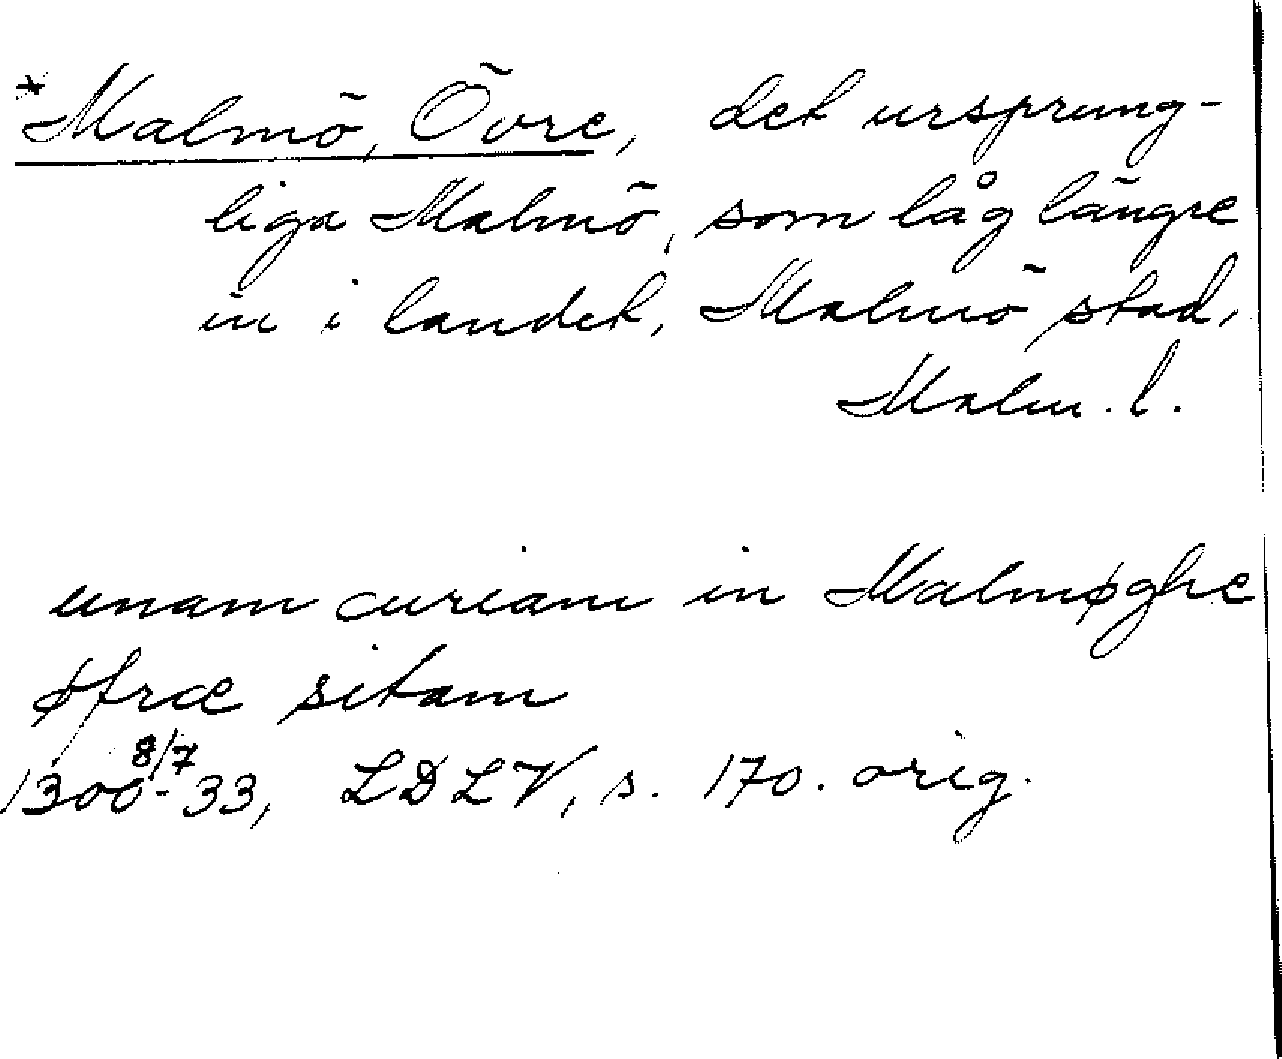 *Malmö, Övre, det ursprung-
liga Malmö, som låg längre
in i landet, Malmö stad,
Malm. l.
unam curiam in Malmøghe
øfræ sitam
1300 8/7-33, LDLV, s. 170. orig.